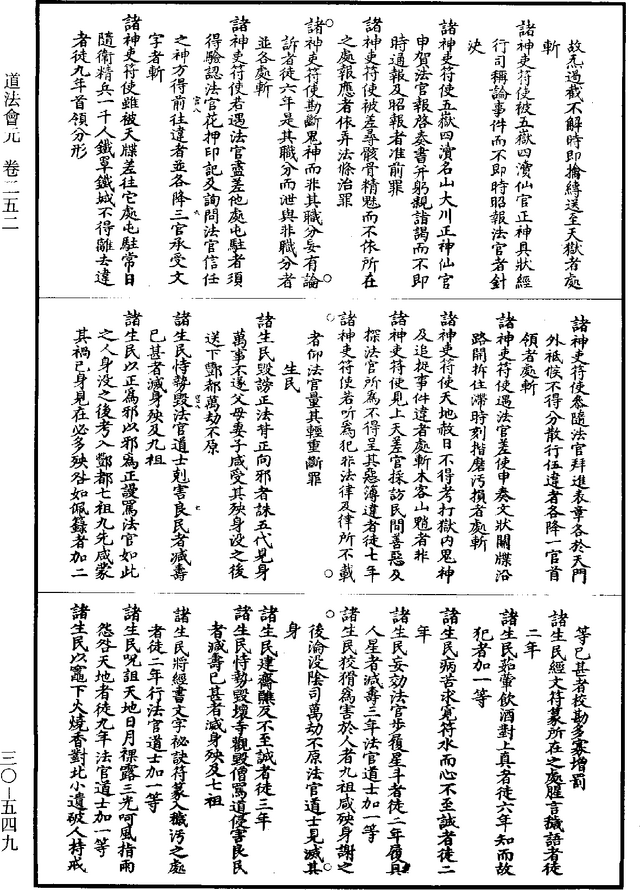 道法會元　卷二五二
三〇—五四九
故炁過截不解時即擒縛送至天獄者處
斬
諸神吏符使被五嶽四瀆仙官正神具狀經
行司稱論事件而不即時昭報法官者針
決
諸神吏符使五嶽四瀆名山大川正神仙官
申賀法官報啓奏書并躬親詣謁而不即
時通報及昭報者准前罪
諸神吏符使被差尋骸骨精魅而不依所在
之處報應者依弄法條治罪
諸神吏符使勘斷鬼神而非其職分妄有論
訴者徒六年是其職分而泄與非職分者
並各處斬
諸神吏符使若遇法官盡差他處屯駐者須
得驗認法官花押印記及詢問法官信任
之神方得前往違者並各降三官承受文
字者斬
諸神吏符使雖被天牒差往它處屯駐常日
隨衛精兵一千人鐵罩鐵城不得離去違
者徒九年首領分形
諸神吏符使叅隨法官拜進表章各於天門
外祗候不得分散行伍違者各降一官首
領者處斬
諸神吏符使遇法官差使申奏文狀關牒沿
路開拆住滯時刻揩磨污損者處斬
諸神吏符使天地赦日不得考打獄内鬼神
及追捉事件違者處斬木客山魈者非
諸神吏符使見上天差官採訪民間善惡及
探法官所為不得呈其惡簿違者徒七年
諸神吏符使若听為犯非法律及律所不載
者仰法官量其輕重斷罪
生民
諸生民毀謗正法背正向邪者誅五代見身
萬事不遂父母妻子咸受其殃身没之後
送下酆都萬劫不原
諸生民恃勢毀法官道士剋害良民者減壽
已甚者滅身殃及九祖
諸生民以正為邪以邪為正謾罵法官如此
之人身没之後考入酆都七祖九先咸蒙
其禍已身見在必多殃咎如佩籙者加二
等已甚者校勘多寡增罰
諸生民經文符篆所在之處腥言穢語者徒
二年
諸生民茹葷飲酒對上真者徒六年知而故
犯者加一等
諸生民病苦求覓符水而心不至誠者徒二
年
諸生民妄効法官步履星斗者徒二年履具
人星者減壽三年法官道士加一等
諸生民狡猾為害於人者九祖咸殃身謝之
後淪没陰司萬劫不原法官道士見滅其
身
諸生民建齋醮及不至誠者徒三年
諸生民恃勢毀壞寺觀毀僧罵道侵害良民
者減壽已甚者滅身殃及七祖
諸生民將經書文字祕訣符篆入穢污之處
者徒二年行法官道士加一等
諸生民呪詛天地日月裸露三光呵風指雨
怨咎天地者徒九年法官道士加一等
諸生民以竈下火燒香對北小遺破人持戒